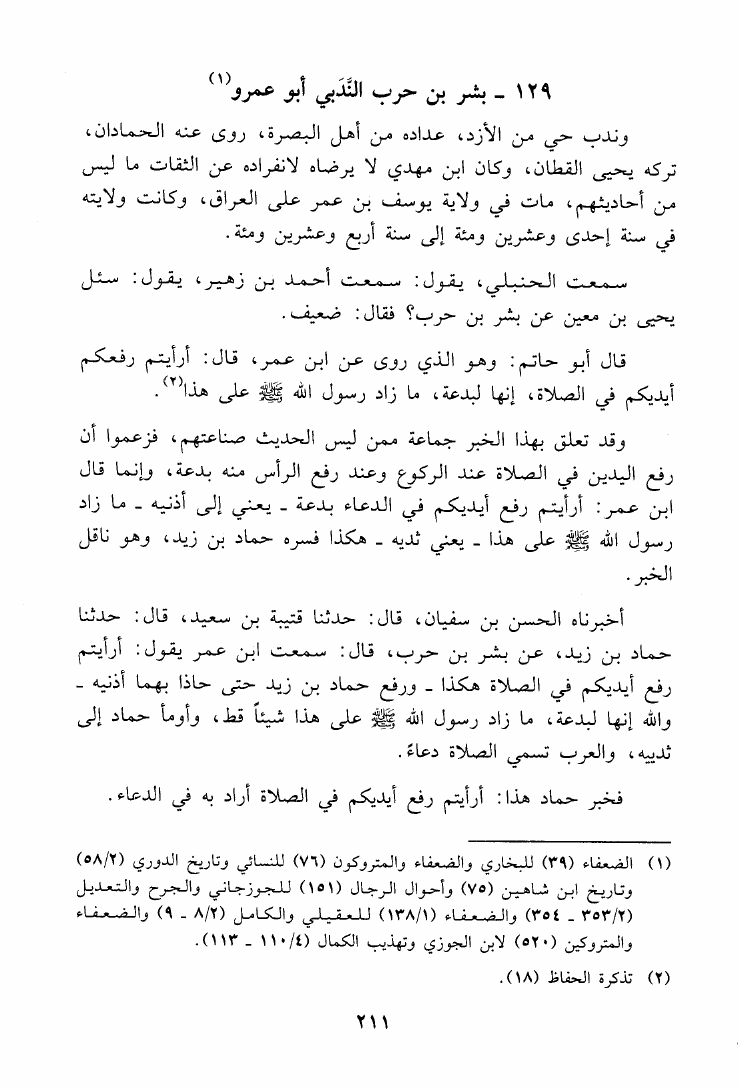 ١٢٩ ـ بشر بن حرب النَّدَبي أبو عمرو(١)
وندب حي من الأزد، عداده من أهل البصرة، روى عنه الحمادان،
تركه يحيى القطان، وكان ابن مهدي لا يرضاه لانفراده عن الثقات ما ليس
من أحاديثهم، مات في ولاية يوسف بن عمر على العراق، وكانت ولايته
في سنة إحدى وعشرين ومئة إلى سنة أربع وعشرين ومئة.
سمعت الحنبلي، يقول: سمعت أحمد بن زهير، يقول: سئل
يحيى بن معين عن بشر بن حرب؟ فقال: ضعيف.
قال أبو حاتم: وهو الذي روى عن ابن عمر، قال: أرأيتم رفعكم
أيديكم في الصلاة، إنها لبدعة، ما زاد رسول الله ﷺ على هذا(٢).
وقد تعلق بهذا الخبر جماعة ممن ليس الحديث صناعتهم، فزعموا أن
رفع اليدين في الصلاة عند الركوع وعند رفع الرأس منه بدعة، وإنما قال
ابن عمر: أرأيتم رفع أيديكم في الدعاء بدعة ـ يعني إلى أذنيه ـ ما زاد
رسول الله ﷺ على هذا ـ يعني ثديه ـ هكذا فسره حماد بن زيد، وهو ناقل
الخبر.
أخبرناه الحسن بن سفيان، قال: حدثنا قتيبة بن سعيد، قال: حدثنا
حماد بن زيد، عن بشر بن حرب، قال: سمعت ابن عمر يقول: أرأيتم
رفع أيديكم في الصلاة هكذا ـ ورفع حماد بن زيد حتى حاذا بهما أذنيه ـ
والله إنها لبدعة، ما زاد رسول الله ﷺ على هذا شيئاً قط، وأومأ حماد إلى
ثدييه، والعرب تسمي الصلاة دعاءً.
فخبر حماد هذا: أرأيتم رفع أيديكم في الصلاة أراد به في الدعاء.
(١) الضعفاء (٣٩) للبخاري والضعفاء والمتروكون (٧٦) للنسائي وتاريخ الدوري (٥٨/٢)
وتاريخ ابن شاهين (٧٥) وأحوال الرجال (١٥١) للجوزجاني والجرح والتعديل
(٣٥٣/٢ ـ ٣٥٤) والضعفاء (١٣٨/١) للعقيلي والكامل (٨/٢ ـ ٩) والضعفاء
والمتروكين (٥٢٠) لابن الجوزي وتهذيب الكمال (١١٠/٤ ـ ١١٣).
(٢) تذكرة الحفاظ (١٨).
٢١١